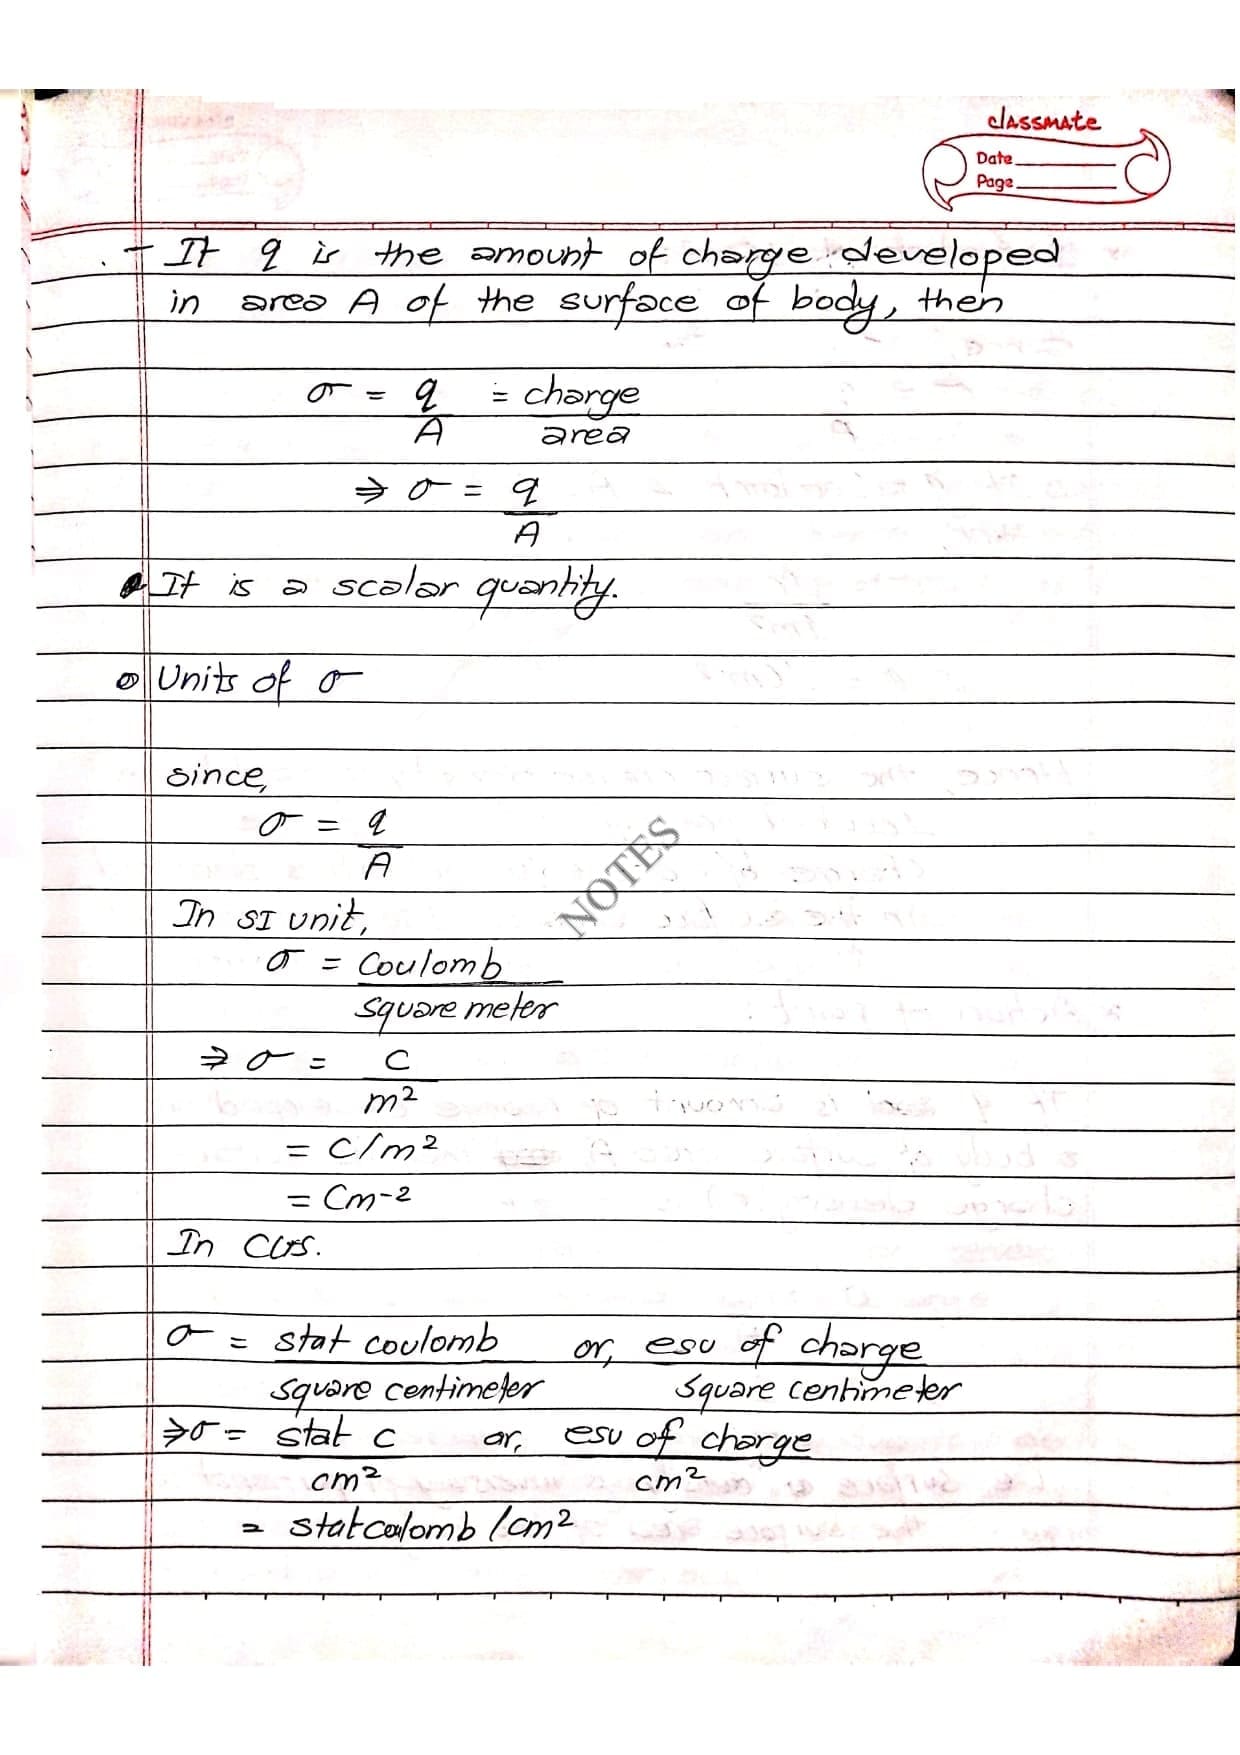 classmate
Date
Page
- If q is the amount of charge developed
in area A of the surface of body, then
σ = q/A = charge/area
⇒ σ = q/A
It is a scalar quantity.
Units of σ
since,
σ = q/A
In SI unit,
σ = Coulomb/square meter
⇒ σ = C/m²
= C/m²
= Cm-2
In CGS.
σ = stat coulomb/square centimeter or, esu of charge/square centimeter
⇒ σ = stat C/cm² or, esu of charge/cm²
= statcoulomb/cm²
NOTES